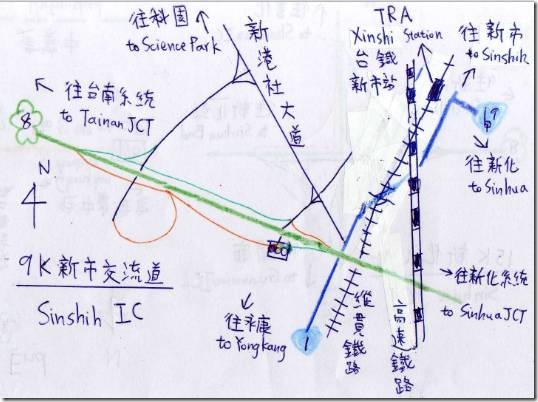 往科園
to Science Park
新港社大道
TRA
Xinshi Station
台鐵
新市站
往新市
to Sinshih
往台南系統
to Tainan JCT
8
19甲
往新化
to Sinhua
N
9K 新市交流道
Sinshih IC
往永康
to Yongkang
1
縱貫鐵路
高速鐵路
往新化系統
to Sinhua JCT